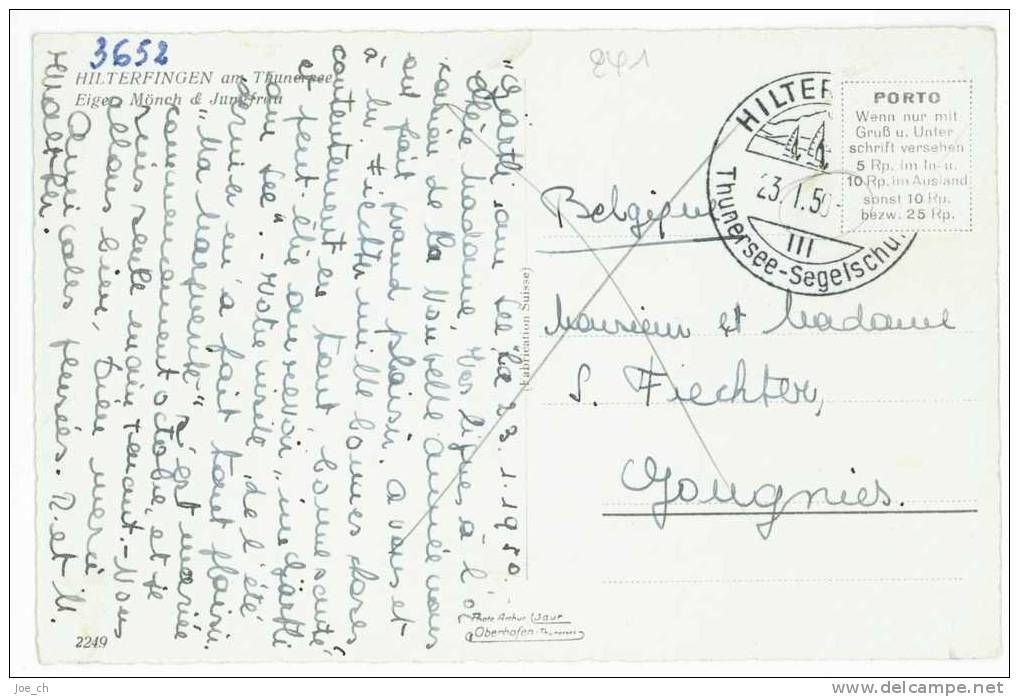 3652
HILTERFINGEN am Thunersee
Eiger Mönch & Jungfrau
2241
"Gärtli am See" 23.1.1950.
Chère Madame, Vos lignes à l'oc
casion de la Nouvelle année nous
ont fait grand plaisir. A vous et
à Mr. Fiechter mille bonnes choses
contentement en tout, bonne santé
et peut-être au revoir, "im Gärtli
am See". - Votre visite de l'été
dernier m'a fait tant plaisir.
"Ma Marguerite" s'est mariée
commencement octobre, et je
suis seule maintenant. - Nous
allons bien, Dieu merci
Amicales pensées. et M.
2249
(Fabrication Suisse)
Photo Arthur Baur
Oberhofen-Thunersee
HILTERF
23.1.50
III
Thunersee-Segelschu
PORTO
Wenn nur mit
Gruß u. Unter
schrift versehen
5 Rp. im In- u.
10 Rp. im Ausland
sonst 10 Rp.
bezw. 25 Rp.
Belgique
Monsieur et Madame
S. Fiechter,
Gougnies.
Joe_ch
www.delcampe.net